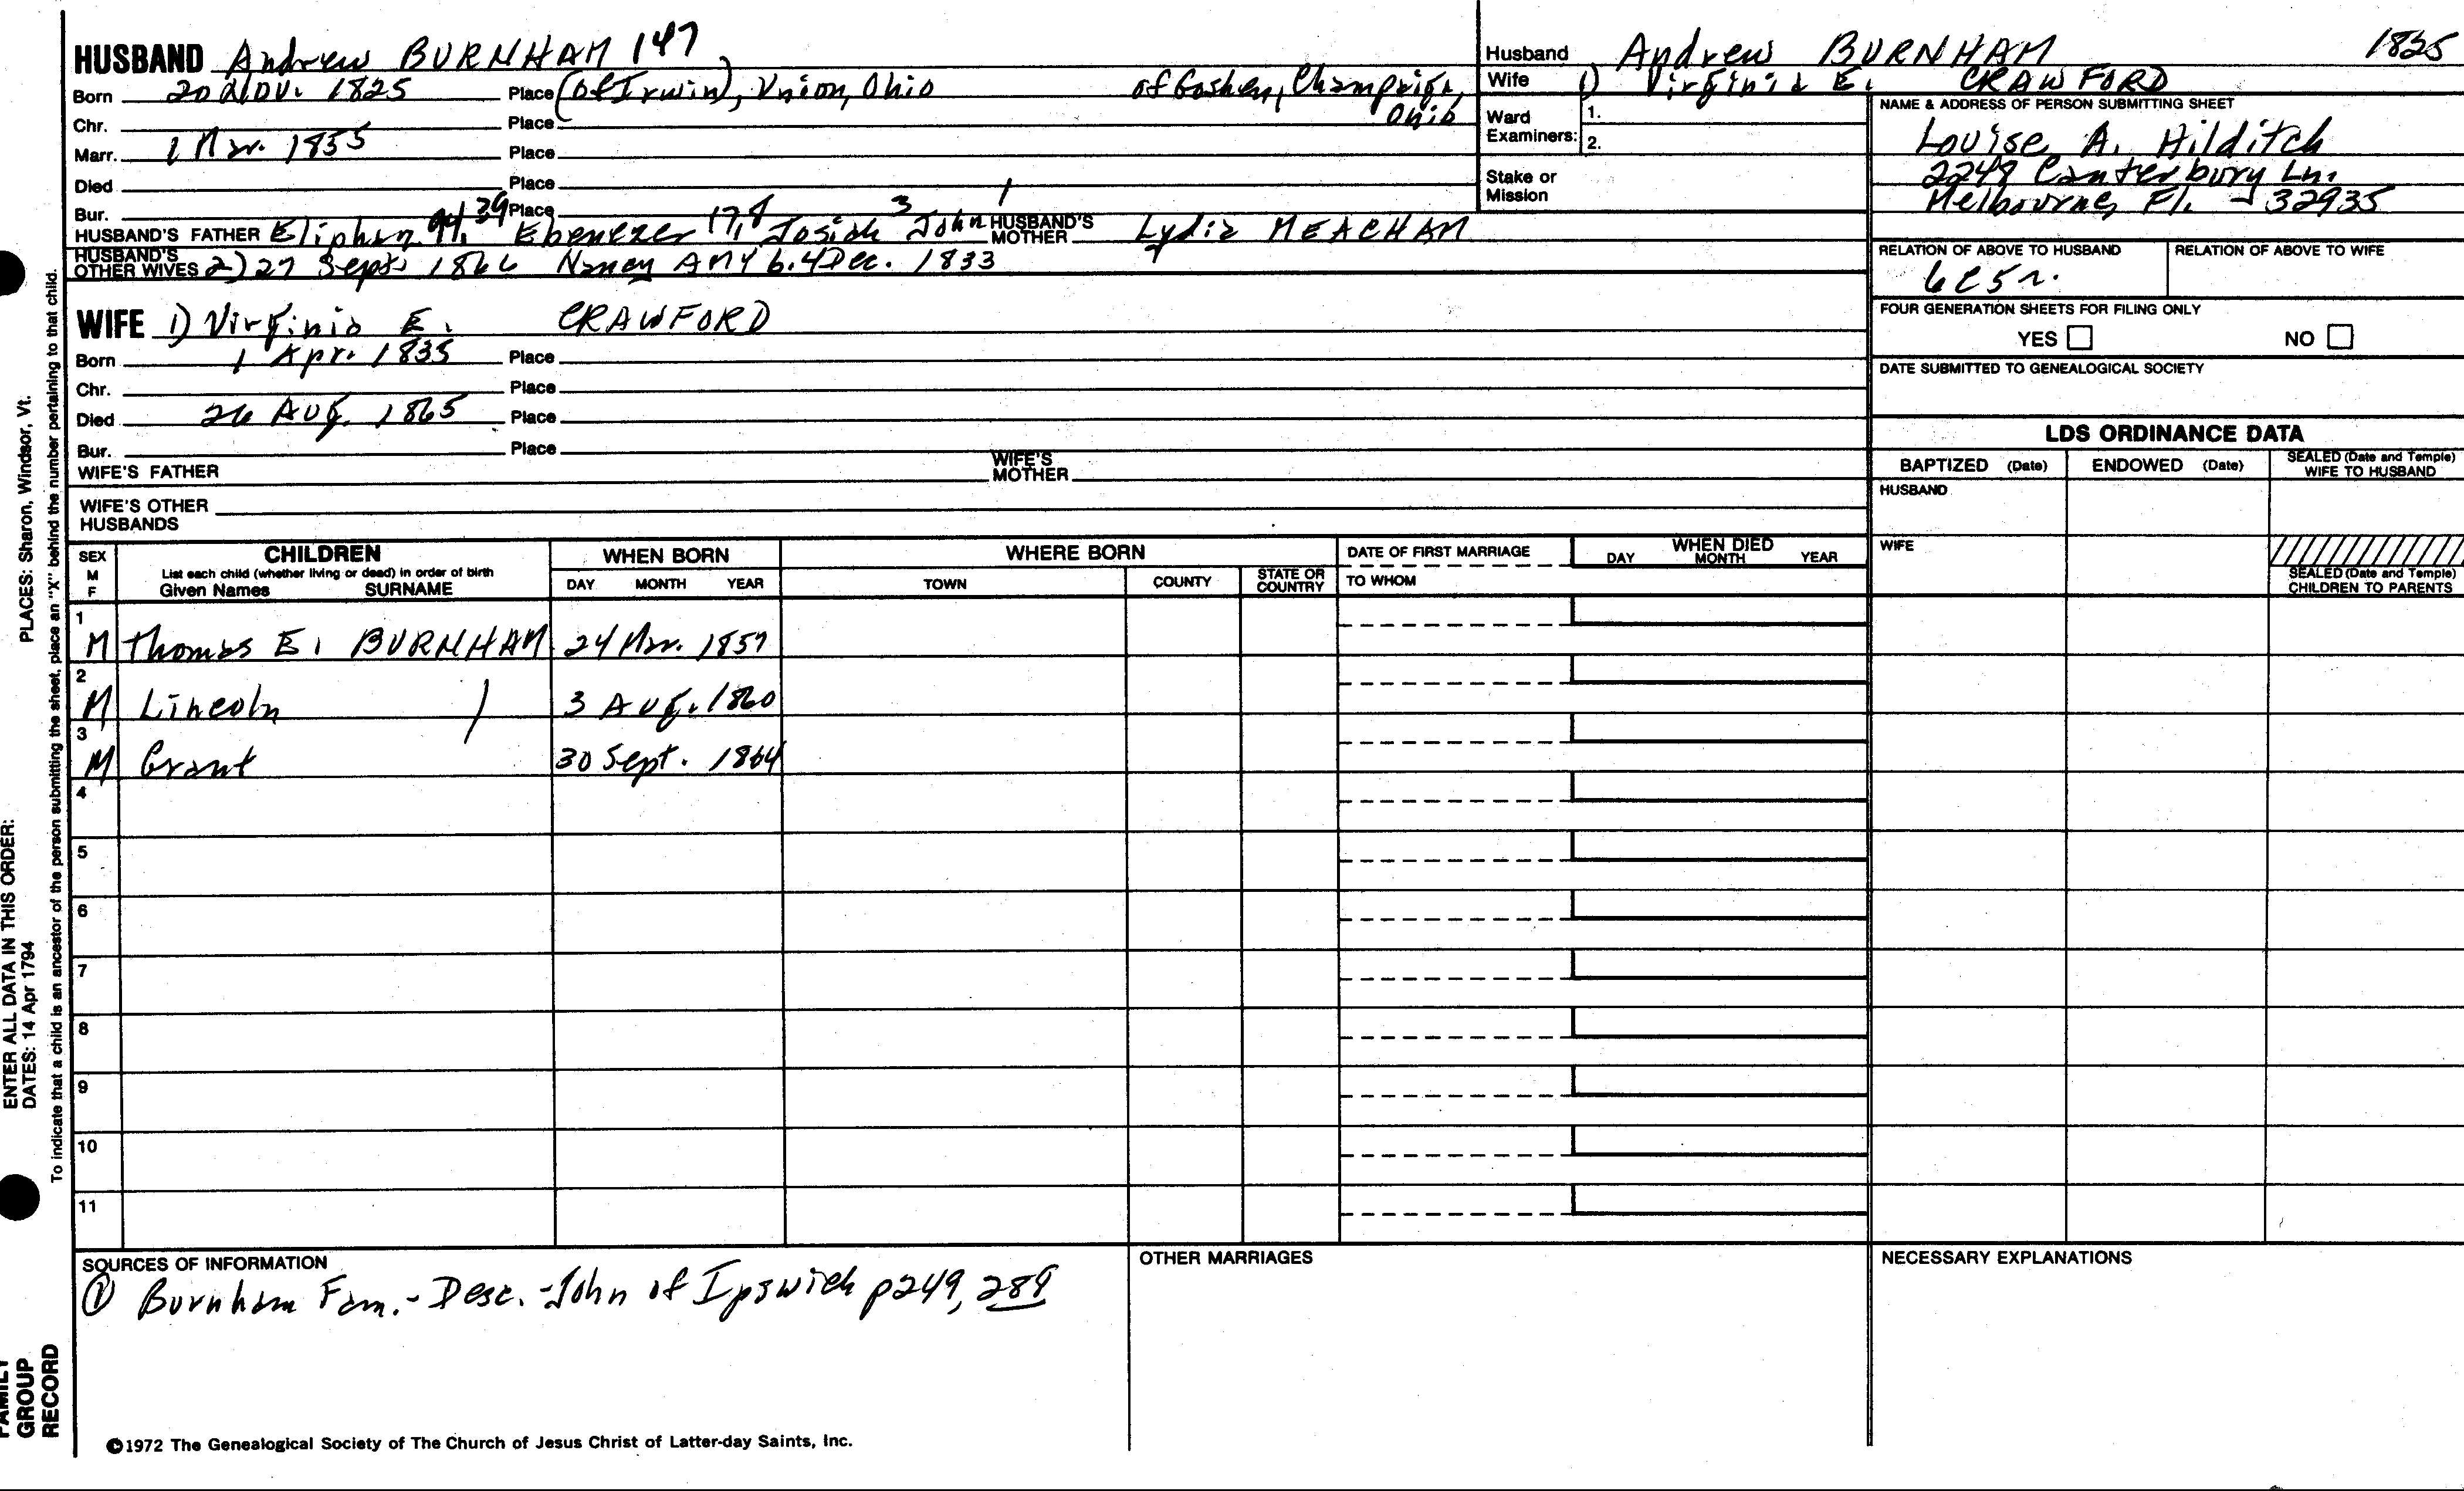 HUSBAND Andrew BURNHAM 147
Born 20 Nov. 1825 Place (of Irwin), Union, Ohio of Goshen, Champaign, Ohio
Chr. Place
Marr. 1 Mar. 1855 Place
Died Place
Bur. Place
HUSBAND'S FATHER Eliphaz Ebenezer Josiah John HUSBAND'S MOTHER Lydia MEACHAM
HUSBAND'S OTHER WIVES 2) 27 Sept. 1866 Nancy AMY b. 4 Dec. 1833
WIFE 1) Virginia E. CRAWFORD
Born 1 Apr. 1835 Place
Chr. Place
Died 26 Aug. 1865 Place
Bur. Place
WIFE'S FATHER WIFE'S MOTHER
WIFE'S OTHER HUSBANDS
Husband Andrew BURNHAM 1825
Wife 1) Virginia E. CRAWFORD
Ward Examiners: 1.
2.
Stake or Mission
NAME & ADDRESS OF PERSON SUBMITTING SHEET
Louise A. Hilditch
2249 Canterbury Ln.
Melbourne, Fl. - 32935
RELATION OF ABOVE TO HUSBAND RELATION OF ABOVE TO WIFE
6C5r.
FOUR GENERATION SHEETS FOR FILING ONLY
YES NO
DATE SUBMITTED TO GENEALOGICAL SOCIETY
LDS ORDINANCE DATA
BAPTIZED (Date) ENDOWED (Date) SEALED (Date and Temple) WIFE TO HUSBAND
HUSBAND
WIFE
SEALED (Date and Temple) CHILDREN TO PARENTS
SEX M F
CHILDREN
List each child (whether living or dead) in order of birth
Given Names SURNAME
WHEN BORN
DAY MONTH YEAR
WHERE BORN
TOWN COUNTY STATE OR COUNTRY
DATE OF FIRST MARRIAGE
TO WHOM
WHEN DIED
DAY MONTH YEAR
1 M Thomas E. BURNHAM 24 Mar. 1857
2 M Lincoln 3 Aug. 1860
3 M Grant 30 Sept. 1864
4
5
6
7
8
9
10
11
SOURCES OF INFORMATION
① Burnham Fam. - Desc. - John of Ipswich p249, 289
OTHER MARRIAGES
NECESSARY EXPLANATIONS
©1972 The Genealogical Society of The Church of Jesus Christ of Latter-day Saints, Inc.
PLACES: Sharon, Windsor, Vt.
To indicate that a child is an ancestor of the person submitting the sheet, place an "X" behind the number pertaining to that child.
ENTER ALL DATA IN THIS ORDER:
DATES: 14 Apr 1794
FAMILY GROUP RECORD